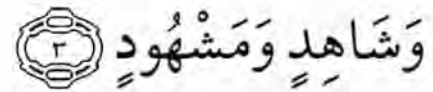 وَشَاهِدٍ وَمَشْهُودٍ ٣